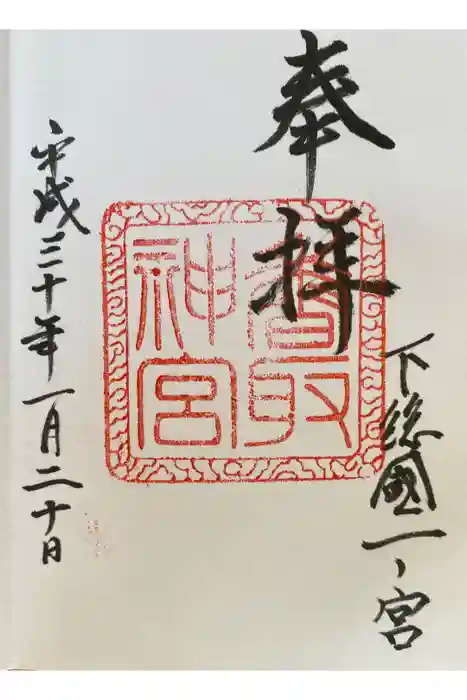 奉拝
下総國一ノ宮
香取
神宮
平成三十年一月二十日